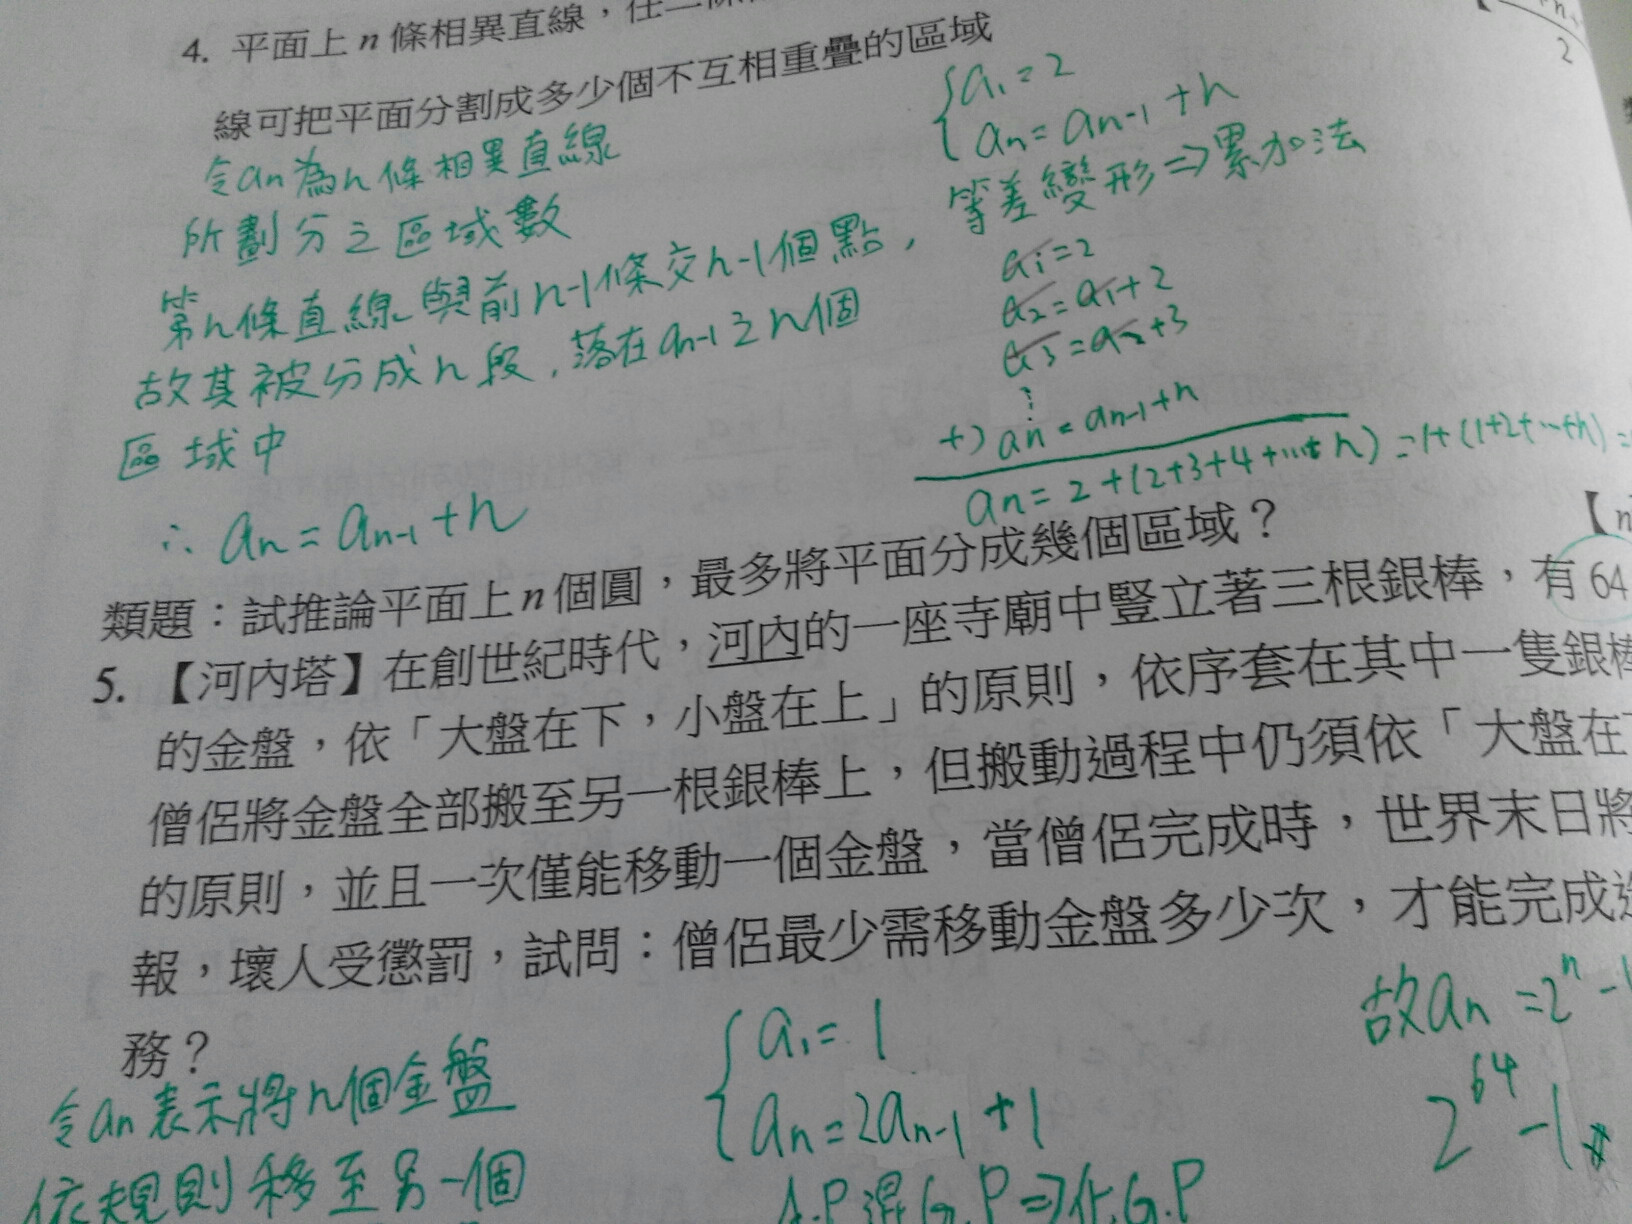 4. 平面上 n 條相異直線，任二條
線可把平面分割成多少個不互相重疊的區域
令an為n條相異直線
所劃分之區域數
第n條直線與前n-1條交n-1個點，
故其被分成n段，落在an-1之n個
區域中
∴ an = an-1 + n
{a1 = 2
an = an-1 + n
等差變形⇒累加法
a1 = 2
a2 = a1 + 2
a3 = a2 + 3
⋮
+) an = an-1 + n
an = 2 + (2+3+4+……+n) = 1+(1+2+…+n) =
2
【n
類題：試推論平面上 n 個圓，最多將平面分成幾個區域？
5. 【河內塔】在創世紀時代，河內的一座寺廟中豎立著三根銀棒，有 64
的金盤，依「大盤在下，小盤在上」的原則，依序套在其中一隻銀棒
僧侶將金盤全部搬至另一根銀棒上，但搬動過程中仍須依「大盤在下
的原則，並且一次僅能移動一個金盤，當僧侶完成時，世界末日將
報，壞人受懲罰，試問：僧侶最少需移動金盤多少次，才能完成
務？
令an表示將n個金盤
依規則移至另一個
{a1 = 1
an = 2an-1 + 1
A.P混G.P⇒化G.P
故an = 2^n - 1
2^64 - 1